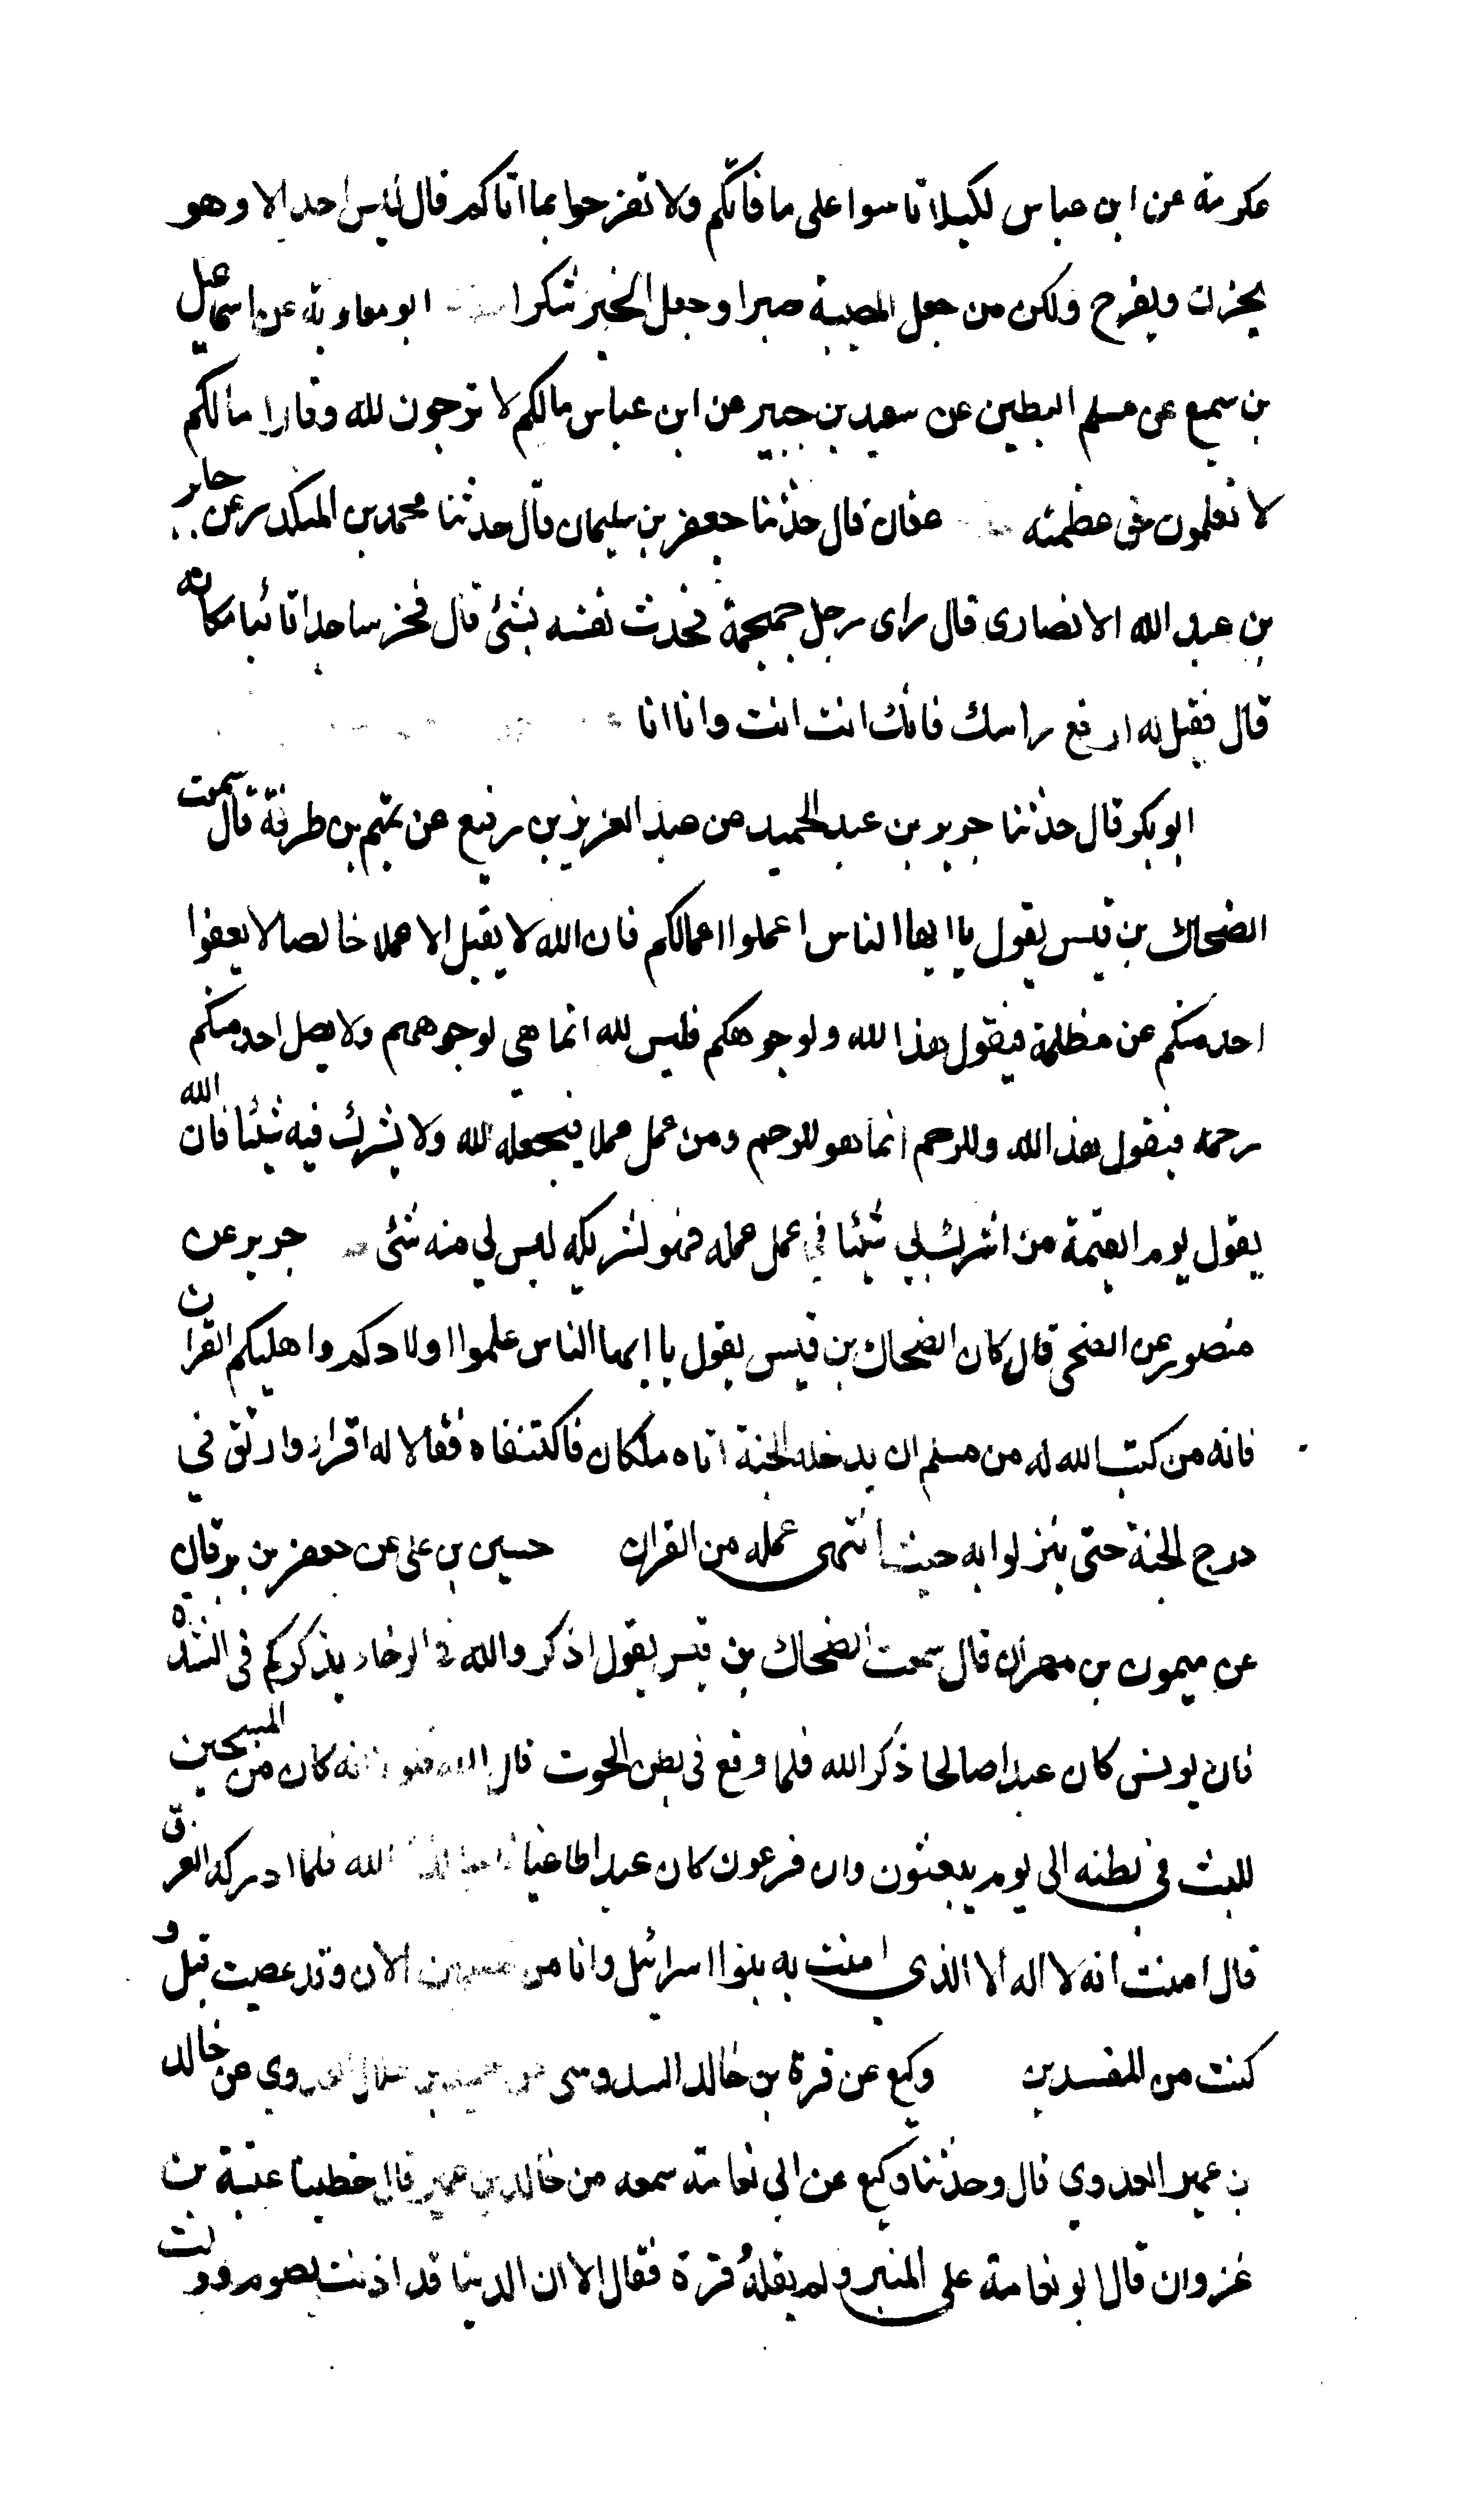 عكرمة عن ابن عباس لكيلا تاسوا على ما فاتكم ولا تفرحوا بما اتاكم قال ليس احد الا وهو
يحزن ويفرح ولكن من جعل المصيبة صبرا وجعل الخير شكرا ابو معاوية عن اسماعيل
بن سميع عن مسلم البطين عن سعيد بن جبير عن ابن عباس مالكم لا ترجون لله وقارا مالكم
لا تعلمون حق عظمته عفان قال حدثنا جعفر بن سليمان قال حدثنا محمد بن المنكدر عن جابر
بن عبد الله الانصاري قال راى رجل جمجمة فحدث نفسه بشئ قال فخر ساجدا تائبا مكانه
قال فقيل له ارفع راسك فانك انت انت وانا انا
ابو بكر قال حدثنا جرير بن عبد الحميد عن عبد العزيز بن رفيع عن تميم بن طرفة قال سمعت
الضحاك بن قيس يقول يا ايها الناس اعملوا اعمالكم فان الله لا يقبل الا عملا خالصا لا يعفوا
احد منكم عن مظلمة فيقول هذا لله ولوجوهكم فليس لله انما هي لوجوههم ولا يصل احد منكم
رحمه فيقول هذا لله وللرحم انما هو للرحم ومن عمل عملا فيجعله لله ولا يشرك فيه شيئا فان الله
يقول يوم القيمة من اشرك بي شيئا في عمل عمله فهو لشريكه ليس لي منه شئ جرير عن
منصور عن الضحى قال كان الضحاك بن قيس يقول يا ايها الناس علموا اولادكم واهليكم القران
فانه من كتب الله له من مسلم ان يدخله الجنة اتاه ملكان فاكتنفاه فقالا له اقرا وارتق في
درج الجنة حتى ينزلوا به حيث انتهى عمله من القران حسين بن على عن جعفر بن برقان
عن ميمون بن مهران قال سمعت الضحاك بن قيس يقول اذكروا الله في الرخاء يذكركم في الشدة
فان يونس كان عبدا صالحا ذكر الله فلما وقع في بطن الحوت قال الله فلولا انه كان من المسبحين
للبث في بطنه الى يوم يبعثون وان فرعون كان عبدا طاغيا الله فلما ادركه الغرق
قال امنت انه لا اله الا الذي امنت به بنوا اسرائيل وانا من المسلمين الان وقد عصيت قبل و
كنت من المفسدين وكيع عن قرة بن خالد السدوسى عن حميد بن هلال العدوي عن خالد
بن عمير العدوي قال وحدثنا وكيع عن ابي نعامة سمعه من خالد بن عمير قال خطبنا عتبة بن
غزوان قال ابو نعامة على المنبر ولم يقله قرة فقال الا ان الدنيا قد اذنت بصرم وولت